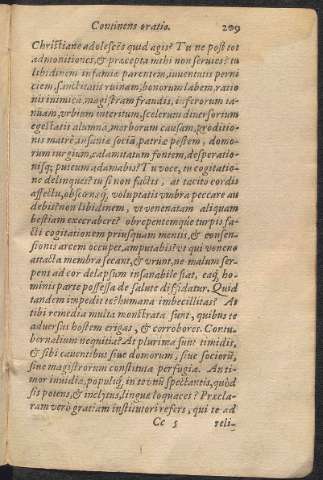 Continens oratio. 209
Christiane adolescēs quid agis? Tu ne post tot
admonitiones, & præcepta mihi non serues? tu
libidinem infamiæ parentem, iuuentutis perni
ciem, sanctitatis ruinam, bonorum labem, ratio
nis inimicā, magistram fraudis, inferorum ia-
nuam, vrbium interitum, scelerum diuersorium
egestatis alumnā, morborum causam, proditio-
nis matrē, insaniæ sociā, patriæ pestem, domo-
rum iurgium, calamitatum fontem, desperatio-
nisq; puteum adamabis? Tu voce, tu cogitatio-
ne delinques? tu si non factis, at tacito cordis
affectu, obscœnæq, voluptatis vmbra peccare au
debis? non libidinem, vt venenatam aliquam
bestiam execrabere? obrepentemque turpis fa-
cti cogitationem priusquam mentis, & consen-
sionis arcem occupet, amputabis? vt qui veneno
attacta membra secant, & vrunt, ne malum ser-
pens ad cor delapsum insanabile fiat, eaq, ho-
minis parte possessa de salute diffidatur. Quid
tandem impedit te? humana imbecillitas? At
tibi remedia multa monstrata sunt, quibus te
aduersus hostem erigas, & corrobores. Contu-
bernalium nequitia? At plurima sunt timidis,
& sibi cauentibus siue domorum, siue sociorū,
siue magistrorum constituta perfugia. An ti-
mor inuidia, populiq, in te vnū spectantis, quòd
sis potens, & inclytus, linguæ loquaces? Præcla-
ram verò gratiam institutori refers, qui te ad
Cc 5 reli-